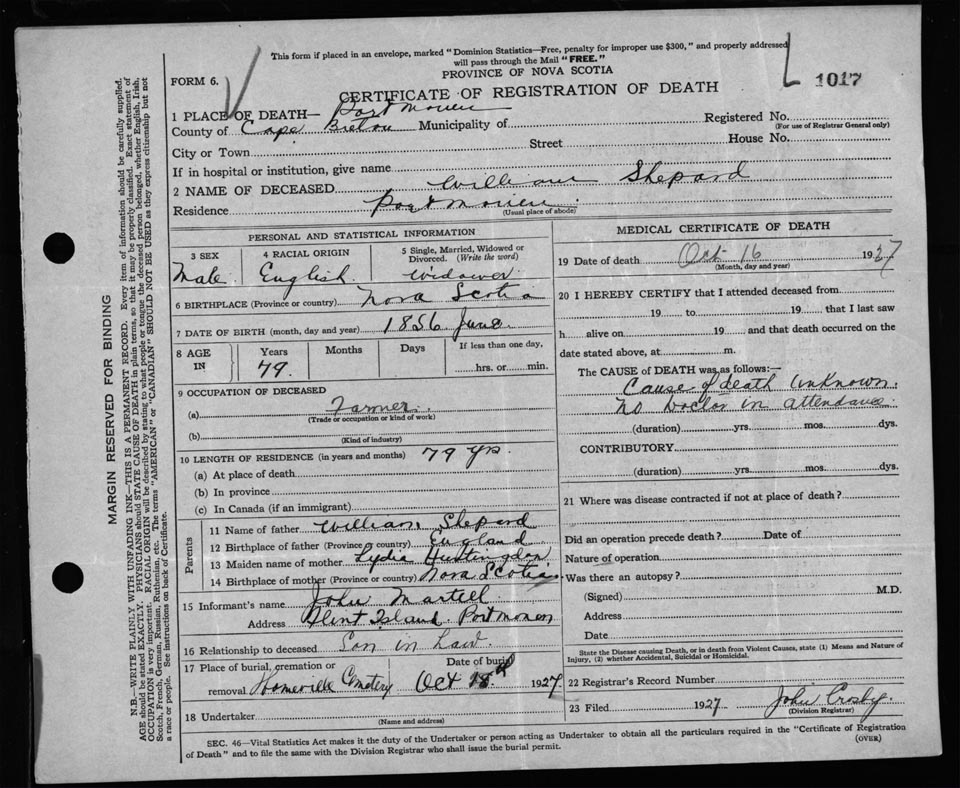 This form if placed in an envelope, marked "Dominion Statistics—Free, penalty for improper use $300," and properly addressed
will pass through the Mail "FREE."
FORM 6.
PROVINCE OF NOVA SCOTIA
1017
CERTIFICATE OF REGISTRATION OF DEATH
1 PLACE OF DEATH— Port Morien
County of Cape Breton Municipality of Registered No.
(For use of Registrar General only)
City or Town Street House No.
If in hospital or institution, give name
2 NAME OF DECEASED William Shepard
Residence Port Morien
(Usual place of abode)
PERSONAL AND STATISTICAL INFORMATION
3 SEX 4 RACIAL ORIGIN 5 Single, Married, Widowed or Divorced. (Write the word)
Male English Widower
6 BIRTHPLACE (Province or country) Nova Scotia
7 DATE OF BIRTH (month, day and year) 1856 June
8 AGE IN Years Months Days If less than one day,
79. hrs. or min.
9 OCCUPATION OF DECEASED
(a) Farmer
(Trade or occupation or kind of work)
(b)
(Kind of industry)
10 LENGTH OF RESIDENCE (in years and months) 79 yrs.
(a) At place of death
(b) In province
(c) In Canada (if an immigrant)
Parents
11 Name of father William Shepard
12 Birthplace of father (Province or country) England
13 Maiden name of mother Lydia
14 Birthplace of mother (Province or country) Nova Scotia
15 Informant's name John Martell
Address Flint Island Port Morien
16 Relationship to deceased Son in Law
17 Place of burial, cremation or removal Homeville Cemetery Date of burial Oct 18th 1927
18 Undertaker
(Name and address)
MEDICAL CERTIFICATE OF DEATH
19 Date of death Oct 16 1927
(Month, day and year)
20 I HEREBY CERTIFY that I attended deceased from
19 to 19 that I last saw
h alive on 19 and that death occurred on the
date stated above, at m.
The CAUSE of DEATH was as follows:—
Cause of death Unknown.
No Doctor in attendance
(duration) yrs. mos. dys.
CONTRIBUTORY
(duration) yrs. mos. dys.
21 Where was disease contracted if not at place of death?
Did an operation precede death? Date of
Nature of operation
Was there an autopsy?
(Signed) M.D.
Address
Date
State the Disease causing Death, or in death from Violent Causes, state (1) Means and Nature of
Injury, (2) whether Accidental, Suicidal or Homicidal.
22 Registrar's Record Number
23 Filed 1927 John Crosby.
(Division Registrar)
SEC. 46—Vital Statistics Act makes it the duty of the Undertaker or person acting as Undertaker to obtain all the particulars required in the "Certificate of Registration
of Death" and to file the same with the Division Registrar who shall issue the burial permit.
(OVER)
MARGIN RESERVED FOR BINDING
N.B.—WRITE PLAINLY WITH UNFADING INK—THIS IS A PERMANENT RECORD. Every item of information should be carefully supplied.
AGE should be stated EXACTLY. PHYSICIANS should STATE CAUSE OF DEATH in plain terms, so that it may be properly classified. Exact statement of
OCCUPATION is very important. RACIAL ORIGIN will be described by stating to what people or tongue the deceased person belonged, whether English, Irish,
Scotch, French, German, Russian, Ruthenian, etc. The terms "AMERICAN" or "CANADIAN" SHOULD NOT BE USED as they express citizenship but not
a race or people. See instructions on back of Certificate.